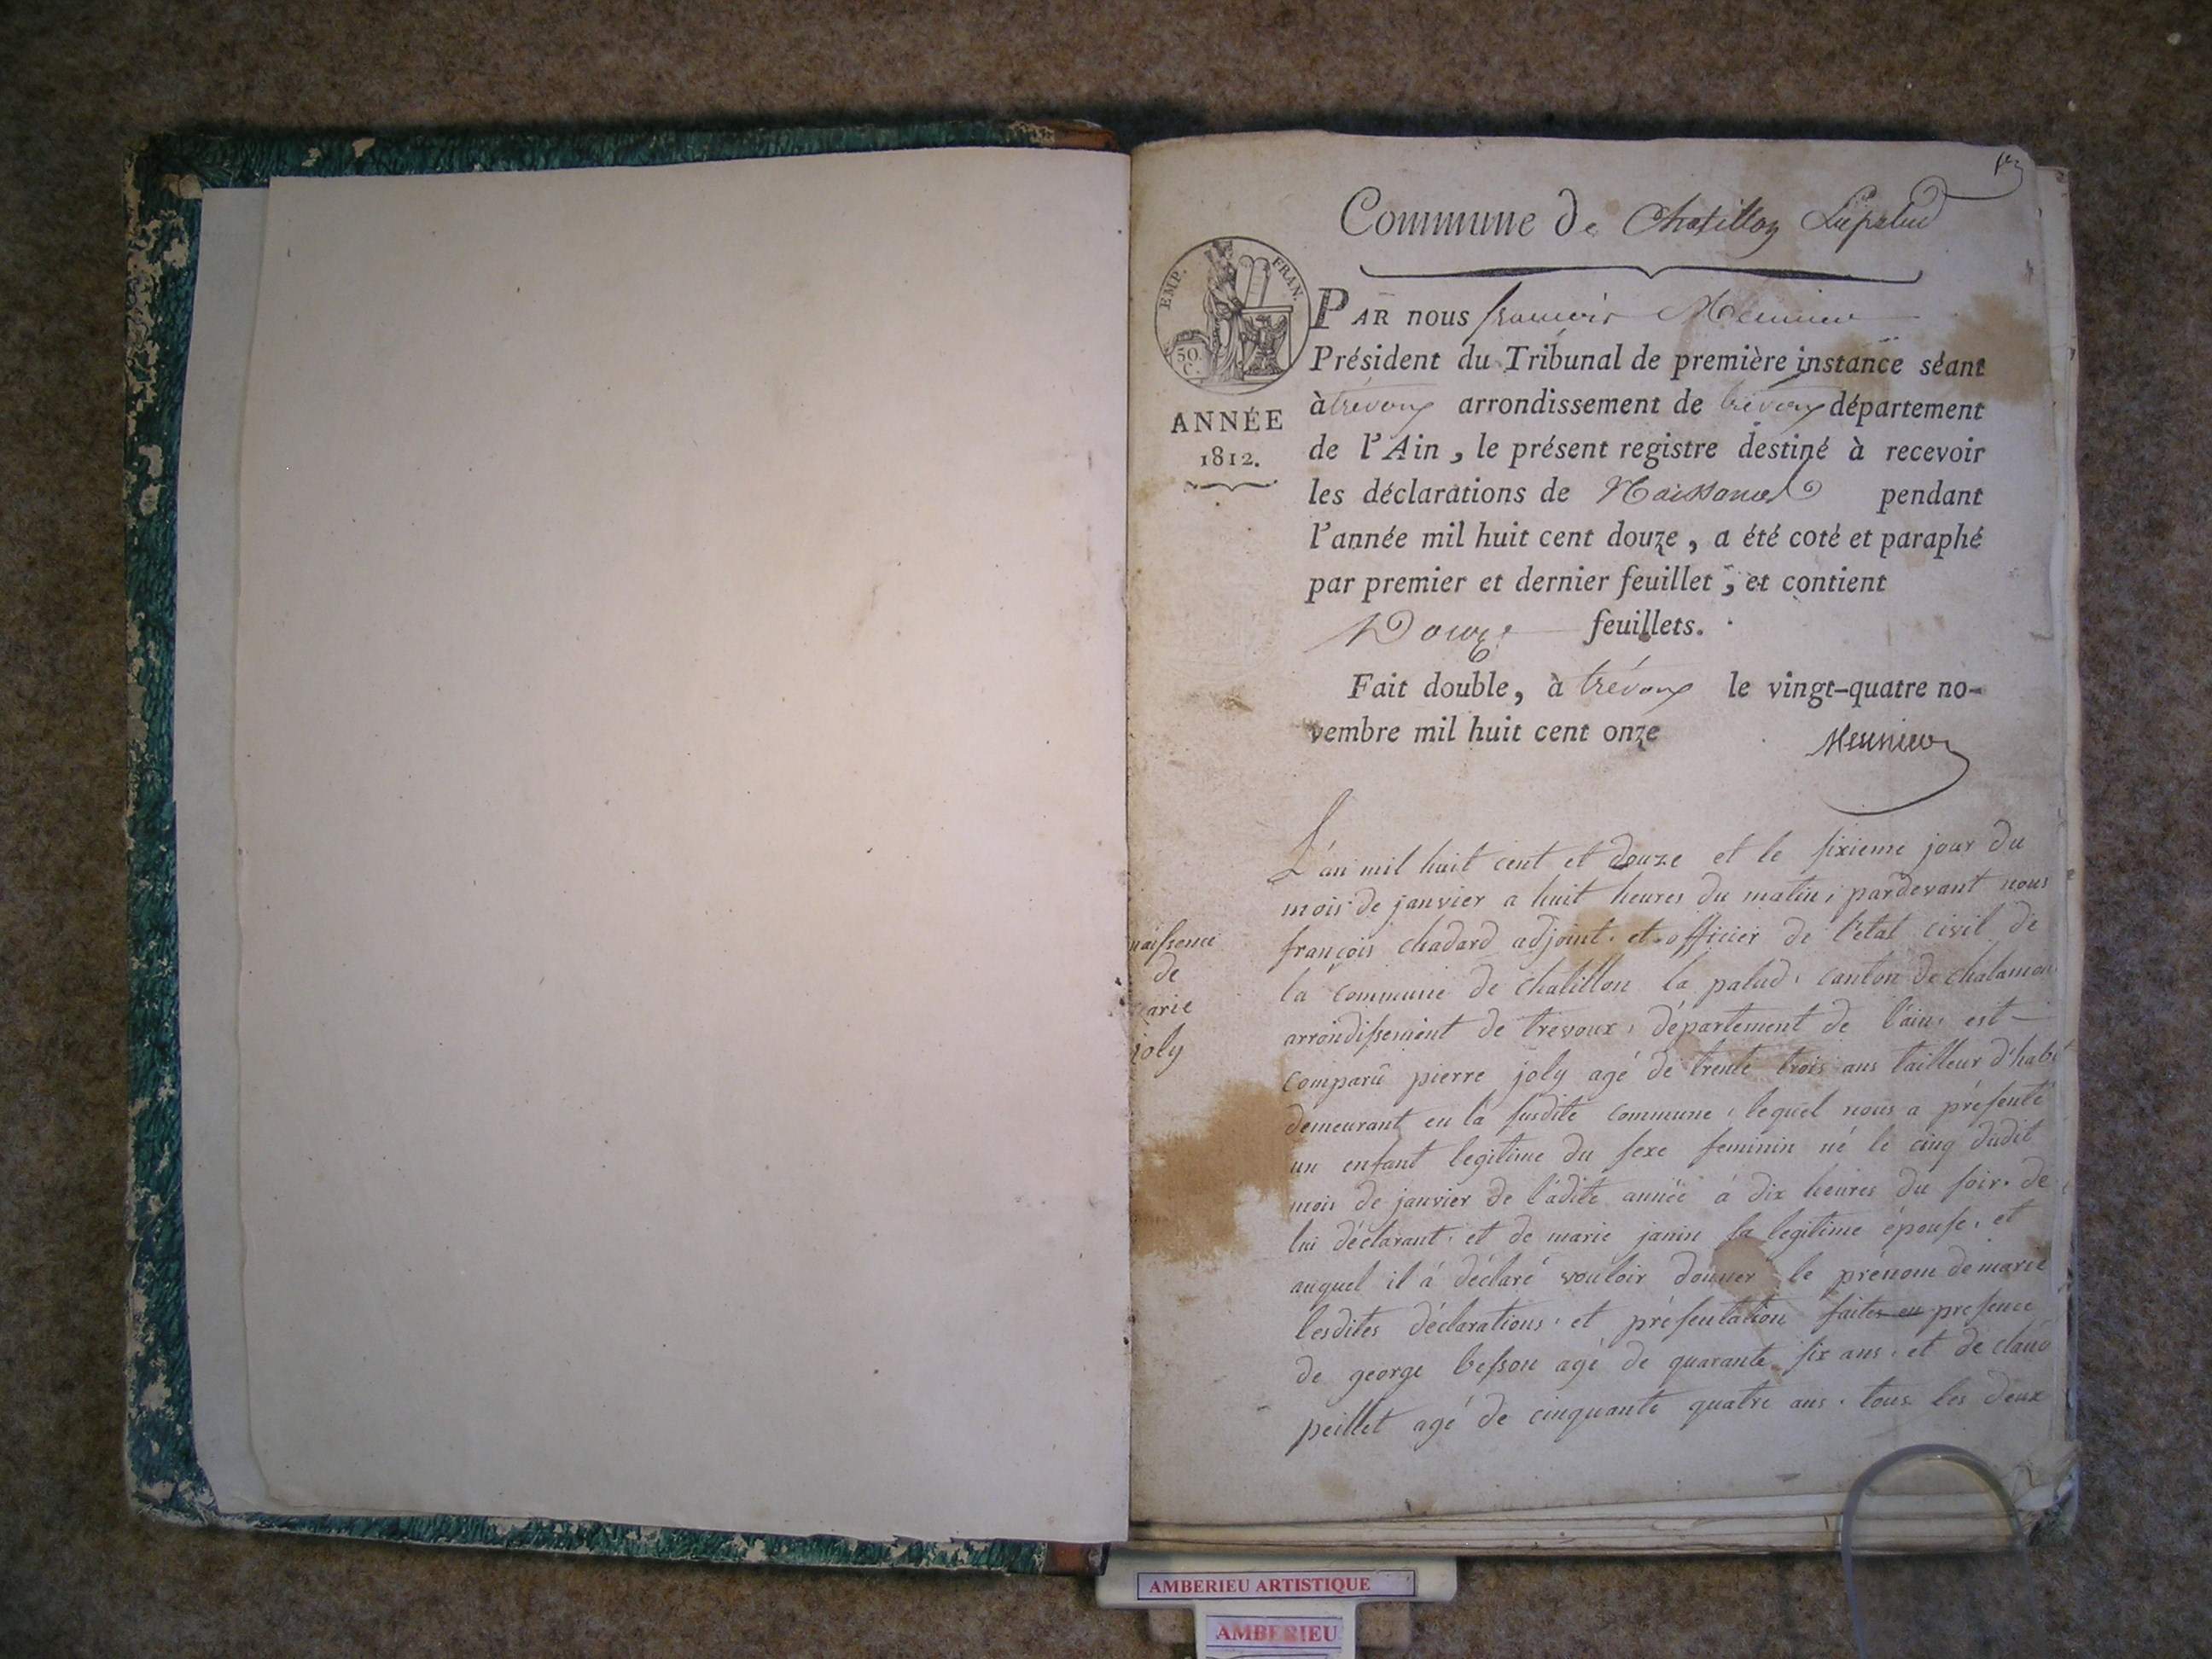 1er
Commune de Chatillon Lapalud
EMP. FRAN.
50.
C.
ANNÉE
1812.
PAR nous francois Meunier
Président du Tribunal de première instance séant
à trévoux arrondissement de trévoux département
de l'Ain, le présent registre destiné à recevoir
les déclarations de Naissances pendant
l'année mil huit cent douze, a été coté et paraphé
par premier et dernier feuillet, et contient
Douze feuillets.
Fait double, à trévoux le vingt-quatre no-
vembre mil huit cent onze
Meunier
naissence
de
marie
joly
L'an mil huit cent et douze et le sixieme jour du
mois de janvier a huit heures du matin, pardevant nous
françois chadard adjoint et officier de l'etat civil de
la commune de chatillon la palud, canton de chalamon
arrondissement de trevoux, département de l'ain, est
comparû pierre joly agé de trente trois ans tailleur d'habit
demeurant en la susdite commune, lequel nous a présenté
un enfant legitime du sexe feminin né le cinq dudit
mois de janvier de ladite année à dix heures du soir. de
lui déclarant, et de marie janin sa legitime épouse, et
auquel il à déclaré vouloir donner le prenom de marie
lesdites déclarations, et présentation faites en presence
de george besson agé de quarante six ans, et de claud
peillet agé de cinquante quatre ans, tous les deux
AMBERIEU ARTISTIQUE
AMBERIEU